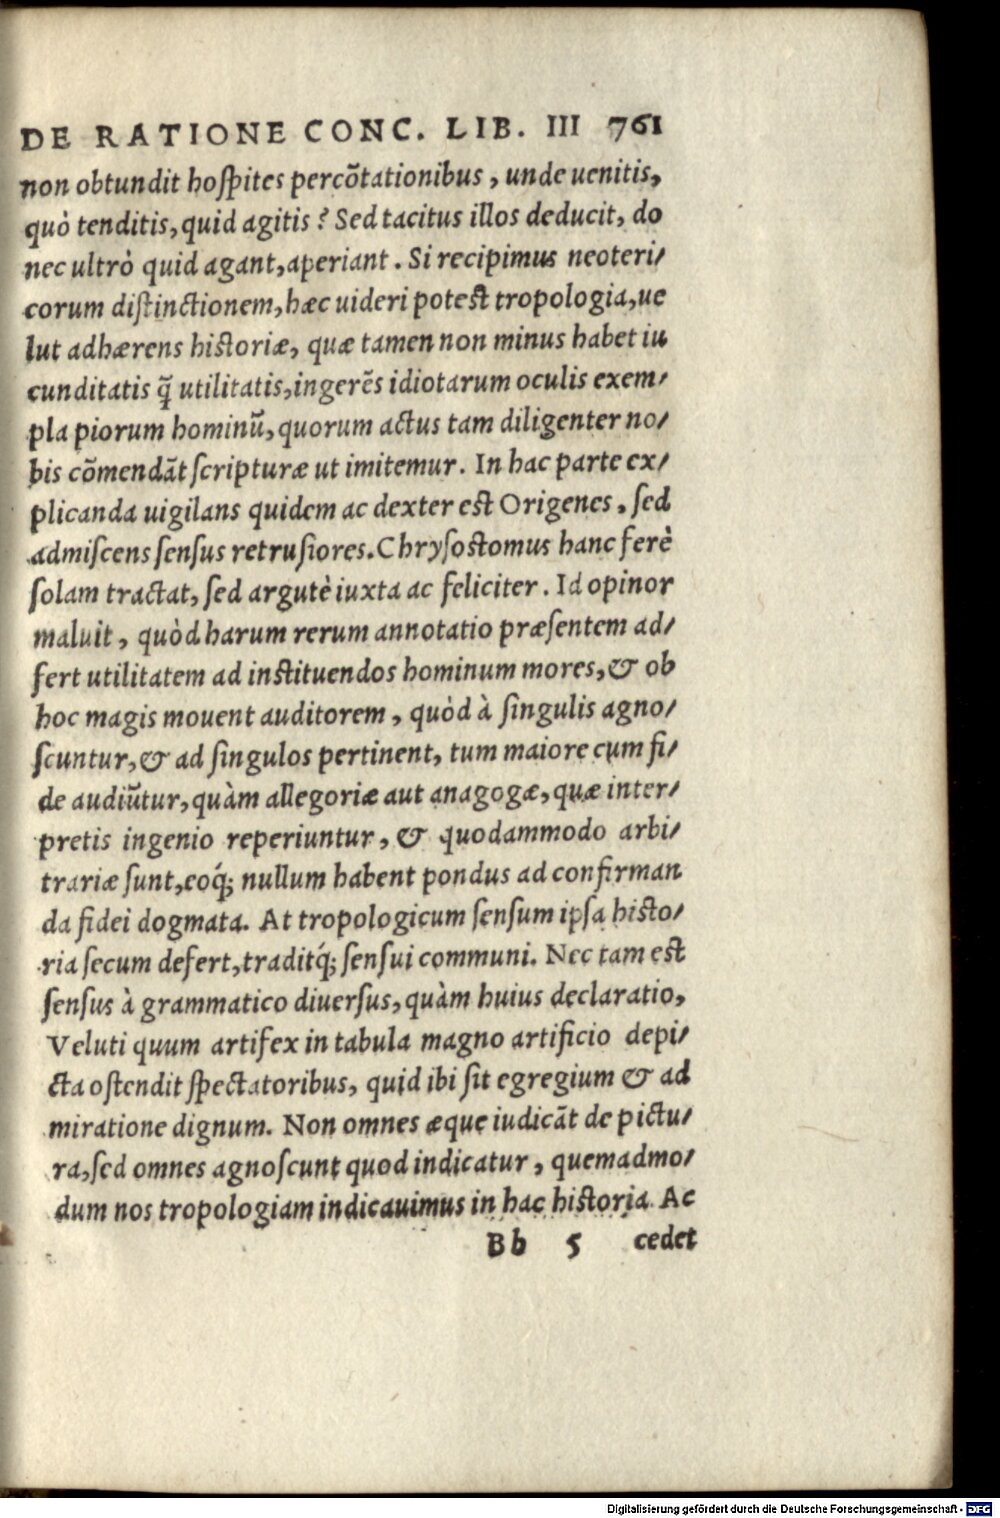 DE RATIONE CONC. LIB. III 761
non obtundit hoſpites percōtationibus, unde uenitis,
quò tenditis, quid agitis? Sed tacitus illos deducit, do
nec ultrò quid agant, aperiant. Si recipimus neoteri/
corum diſtinctionem, hæc uideri poteſt tropologia, ue
lut adhærens hiſtoriæ, quæ tamen non minus habet iu
cunditatis q̃ utilitatis, ingerẽs idiotarum oculis exem/
pla piorum hominũ, quorum actus tam diligenter no/
bis cōmendãt ſcripturæ ut imitemur. In hac parte ex/
plicanda uigilans quidem ac dexter eſt Origenes, ſed
admiſcens ſenſus retruſiores. Chryſoſtomus hanc ferè
ſolam tractat, ſed argutè iuxta ac feliciter. Id opinor
maluit, quòd harum rerum annotatio præſentem ad/
fert utilitatem ad inſtituendos hominum mores, & ob
hoc magis mouent auditorem, quòd à ſingulis agno/
ſcuntur, & ad ſingulos pertinent, tum maiore cum fi/
de audiũtur, quàm allegoriæ aut anagogæ, quæ inter/
pretis ingenio reperiuntur, & quodammodo arbi/
trariæ ſunt, eoq́; nullum habent pondus ad confirman
da fidei dogmata. At tropologicum ſenſum ipſa hiſto/
ria ſecum defert, traditq́; ſenſui communi. Nec tam eſt
ſenſus à grammatico diuerſus, quàm huius declaratio,
Veluti quum artifex in tabula magno artificio depi/
cta oſtendit ſpectatoribus, quid ibi ſit egregium & ad
miratione dignum. Non omnes æque iudicãt de pictu/
ra, ſed omnes agnoſcunt quod indicatur, quemadmo/
dum nos tropologiam indicauimus in hac hiſtoria. Ac
Bb 5 cedet
Digitalisierung gefördert durch die Deutsche Forschungsgemeinschaft - DFG